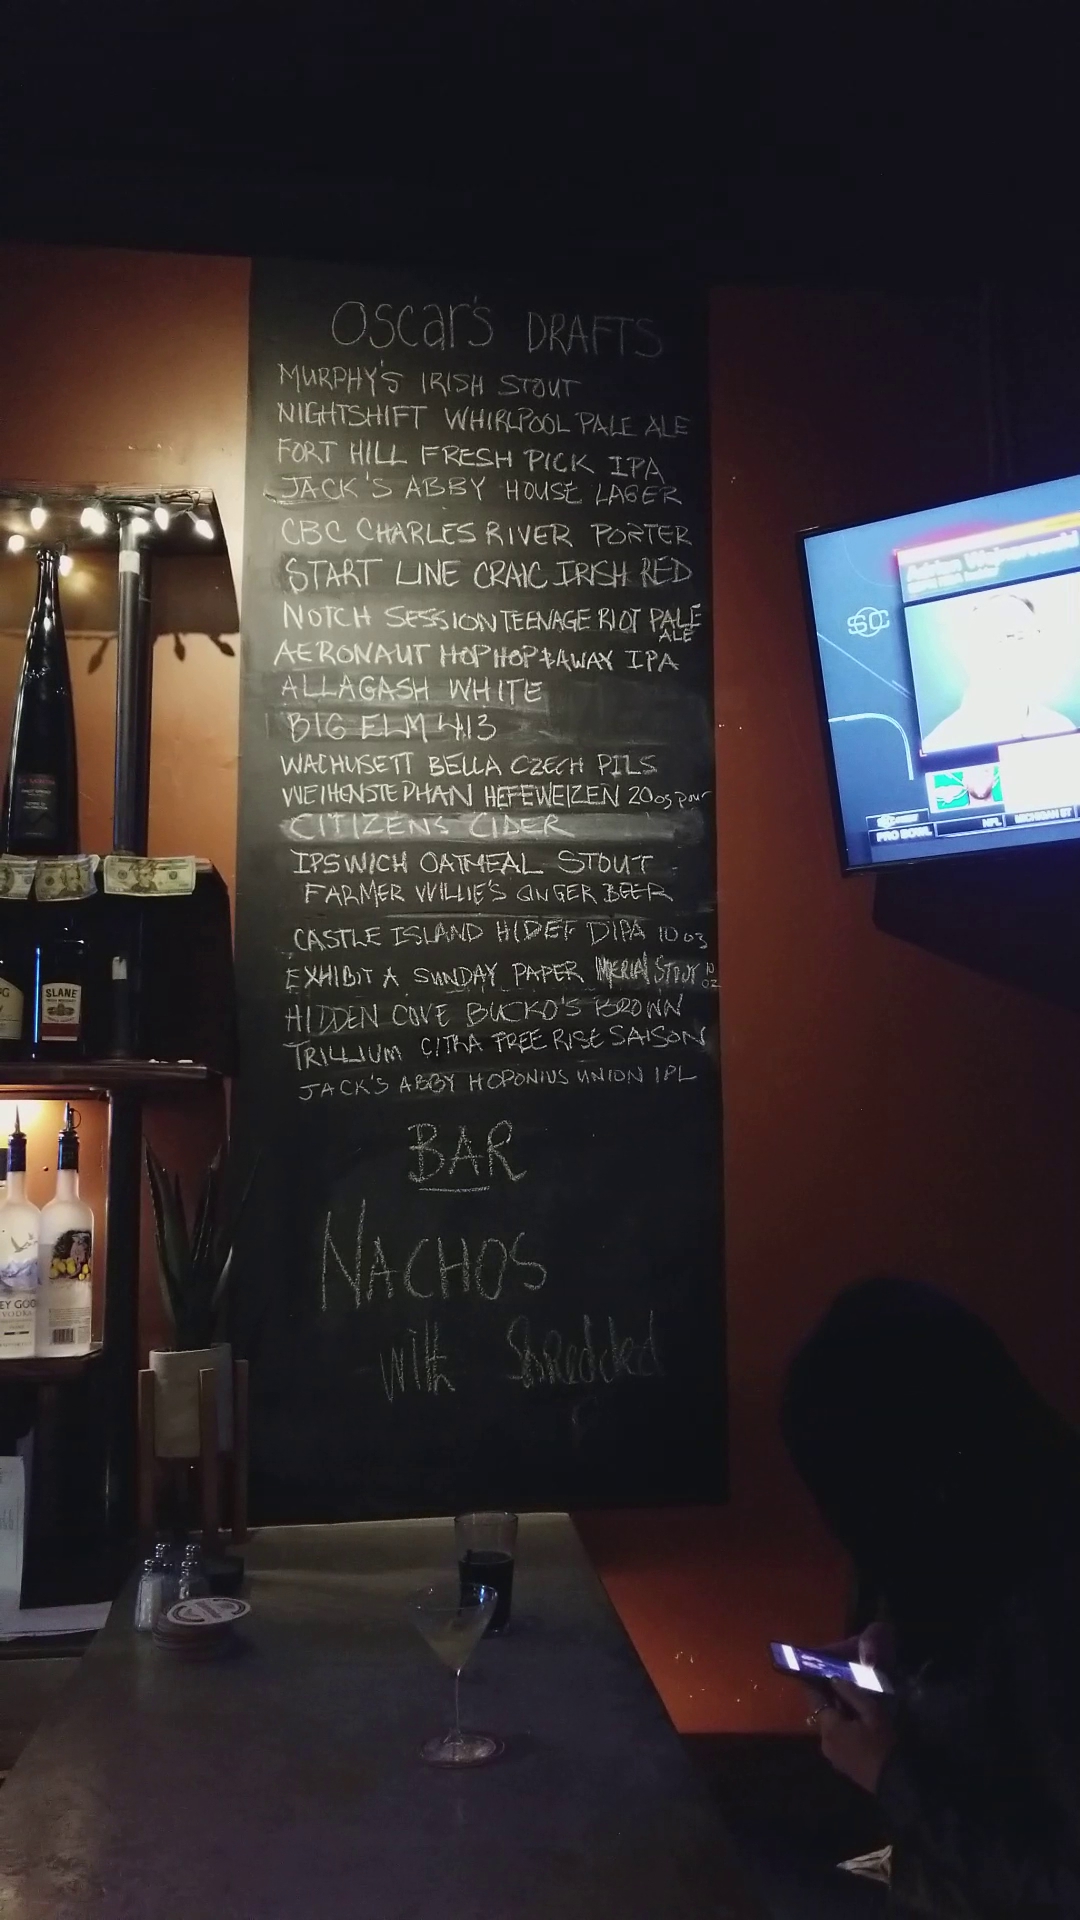 Oscar's DRAFTS
MURPHY'S IRISH STOUT
NIGHTSHIFT WHIRLPOOL PALE ALE
FORT HILL FRESH PICK IPA
JACK'S ABBY HOUSE LAGER
CBC CHARLES RIVER PORTER
START LINE CRAIC IRISH RED
NOTCH SESSION TEENAGE RIOT PALE
ALE
AERONAUT HOP HOP & AWAY IPA
ALLAGASH WHITE
BIG ELM 413
WACHUSETT BELLA CZECH PILS
WEIHENSTEPHAN HEFEWEIZEN 20oz pour
CITIZENS CIDER
IPSWICH OATMEAL STOUT
FARMER WILLIE'S GINGER BEER
CASTLE ISLAND HIDEF DIPA 10 oz
EXHIBIT A SUNDAY PAPER IMPERIAL STOUT 10
OZ
HIDDEN COVE BUCKO'S BROWN
TRILLIUM CITRA FREE RISE SAISON
JACK'S ABBY HOPONIUS UNION IPL
BAR
NACHOS
with Shredded
SLANE
VODKA
SC
PRO BOWL
NFL
MICHIGAN ST